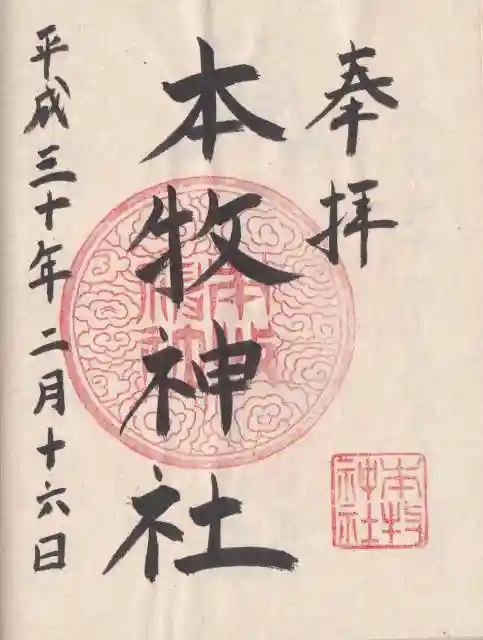 奉拝
本牧神社
平成三十年二月十六日
本牧
神社